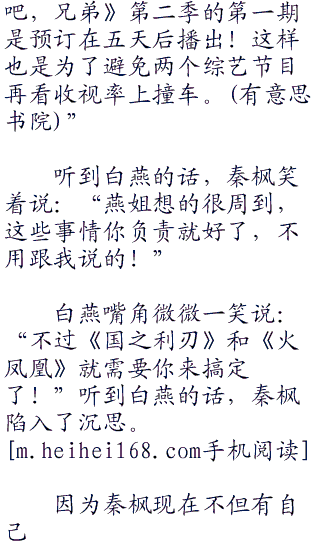 吧，兄弟》第二季的第一期
是预订在五天后播出！这样
也是为了避免两个综艺节目
再看收视率上撞车。(有意思
书院)”
听到白燕的话，秦枫笑
着说：“燕姐想的很周到，
这些事情你负责就好了，不
用跟我说的！”
白燕嘴角微微一笑说：
“不过《国之利刃》和《火
凤凰》就需要你来搞定
了！”听到白燕的话，秦枫
陷入了沉思。
[m.heihei168.com手机阅读]
因为秦枫现在不但有自
己